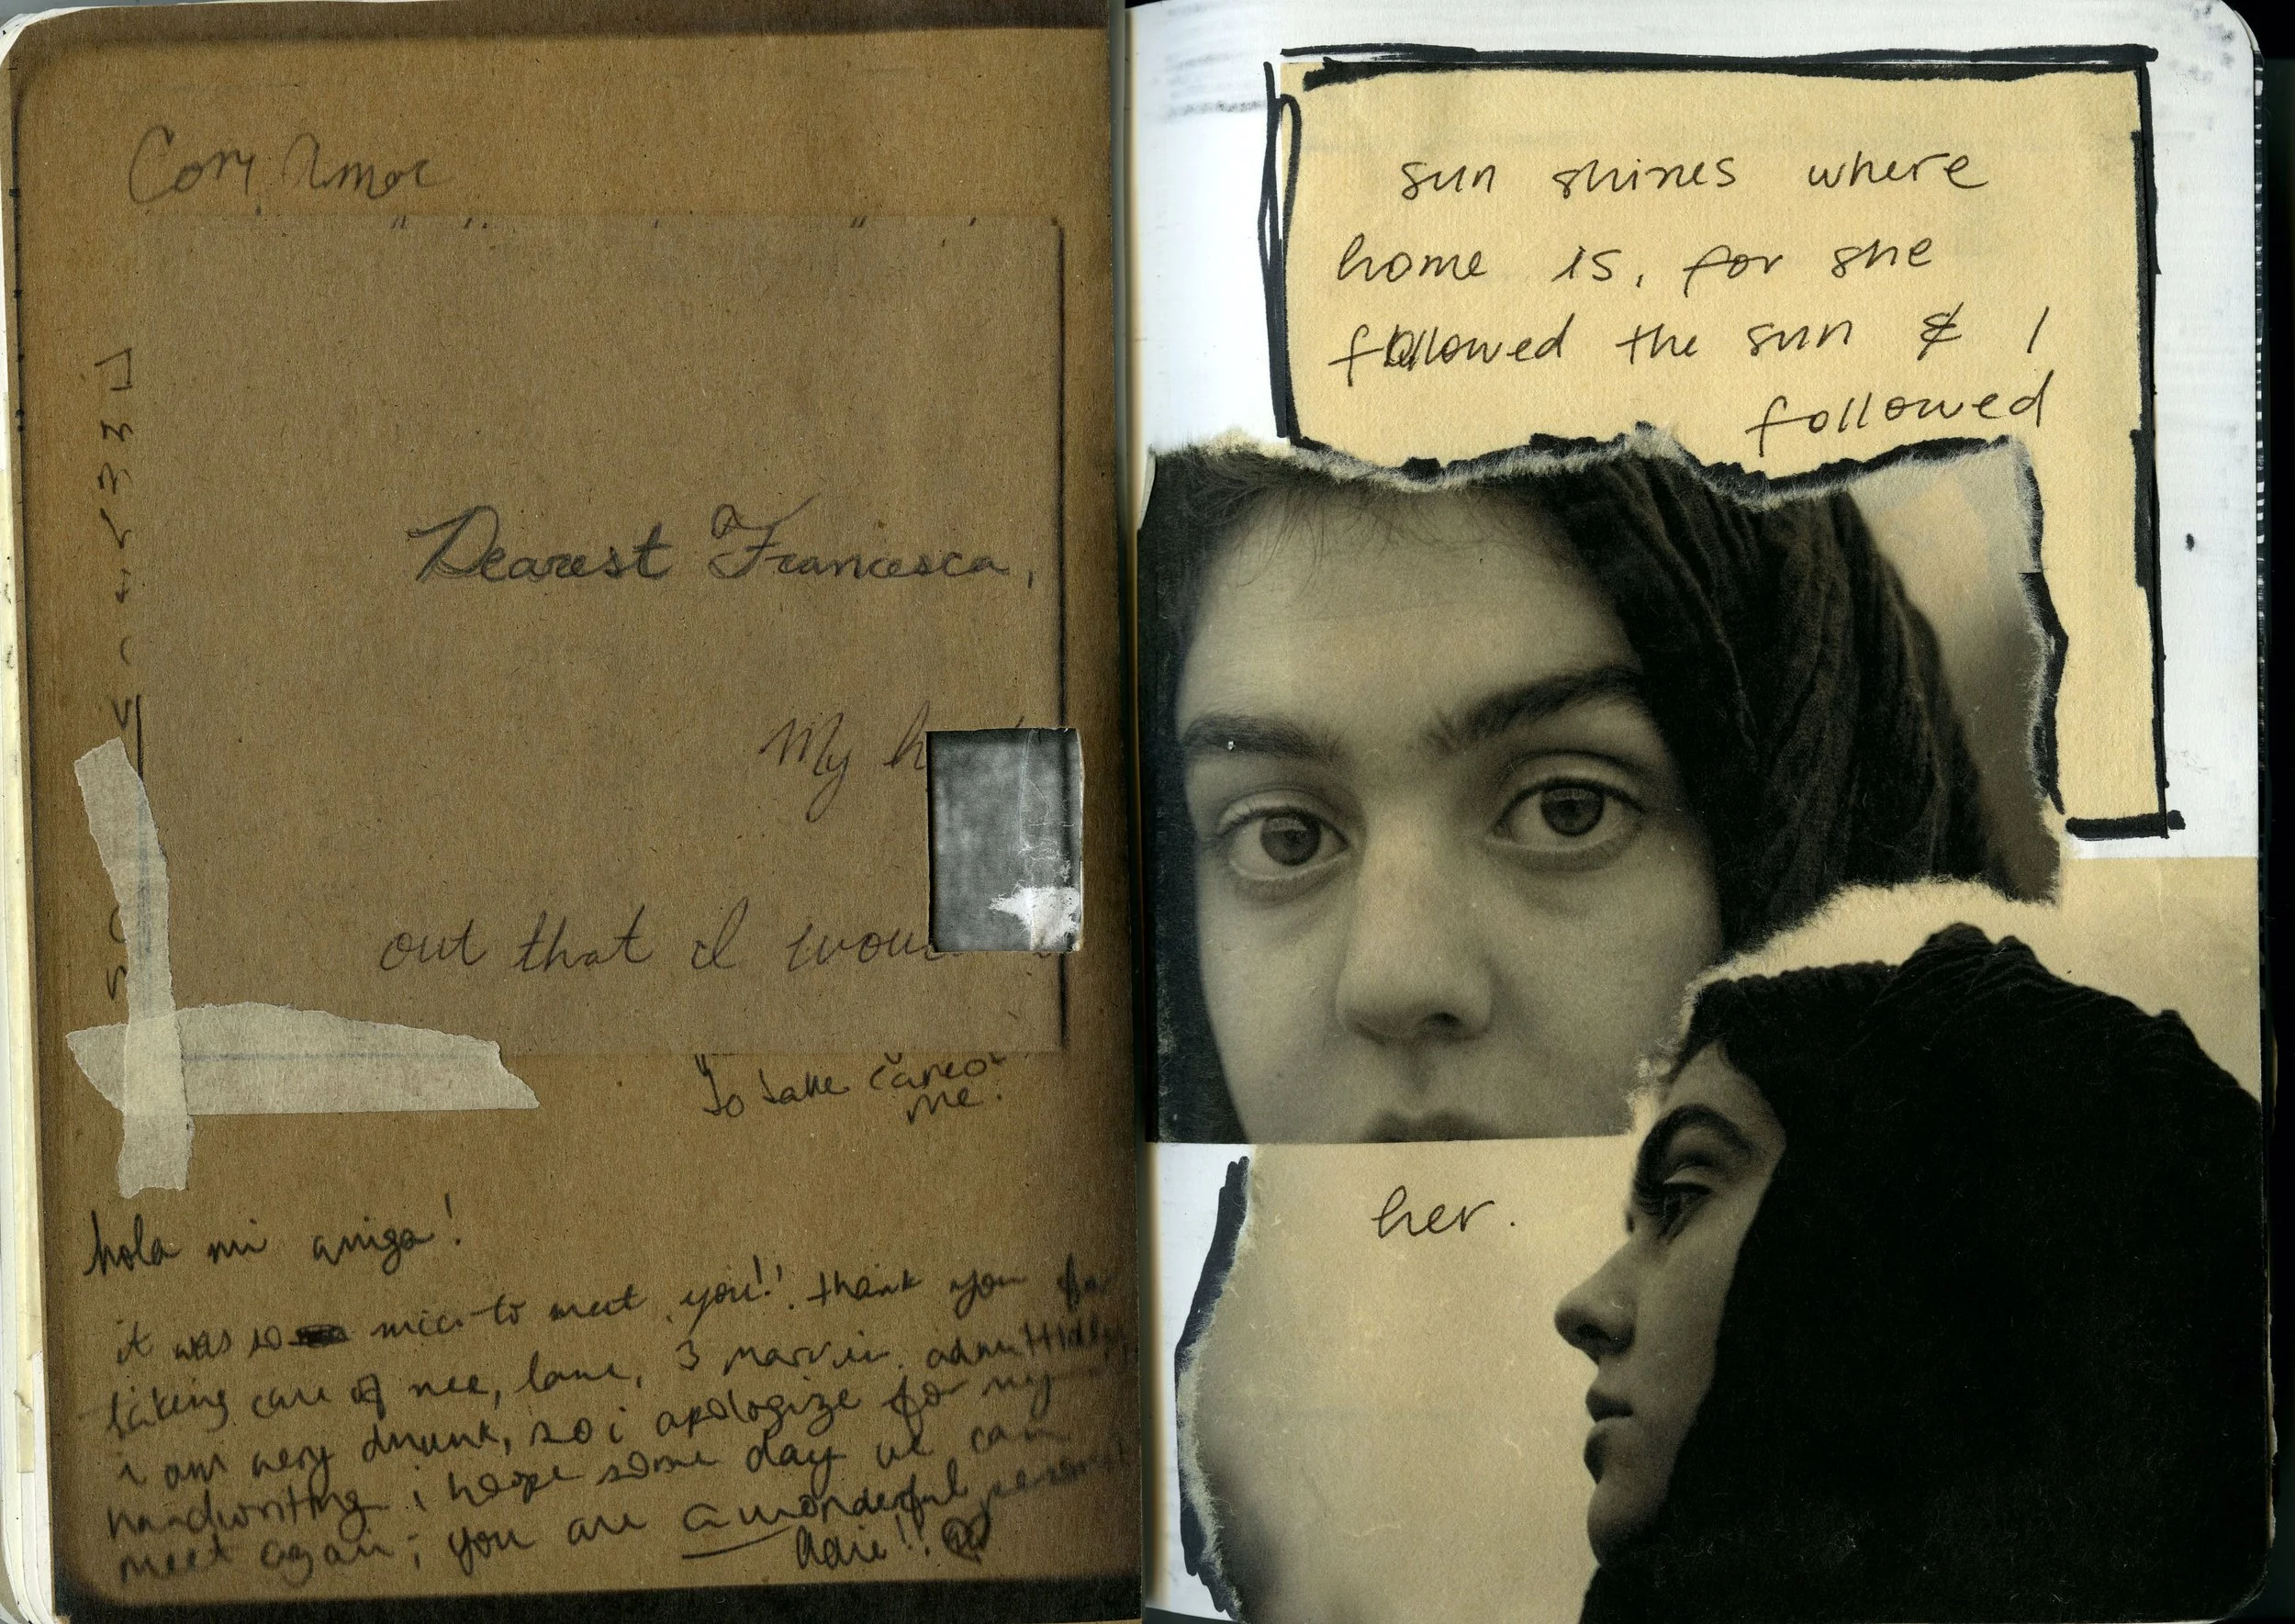 Dearest Francesca,
My h
out that I wou
To take care of
me.
hola mi amiga!
it was so nice to meet you!! thank you for
taking care of me, lane, & admittedly
i am very drunk, so i apologize for my
handwriting. i hope some day we can
meet again; you are a wonderful person!
sun shines where
home is, for she
followed the sun & I
followed
her.